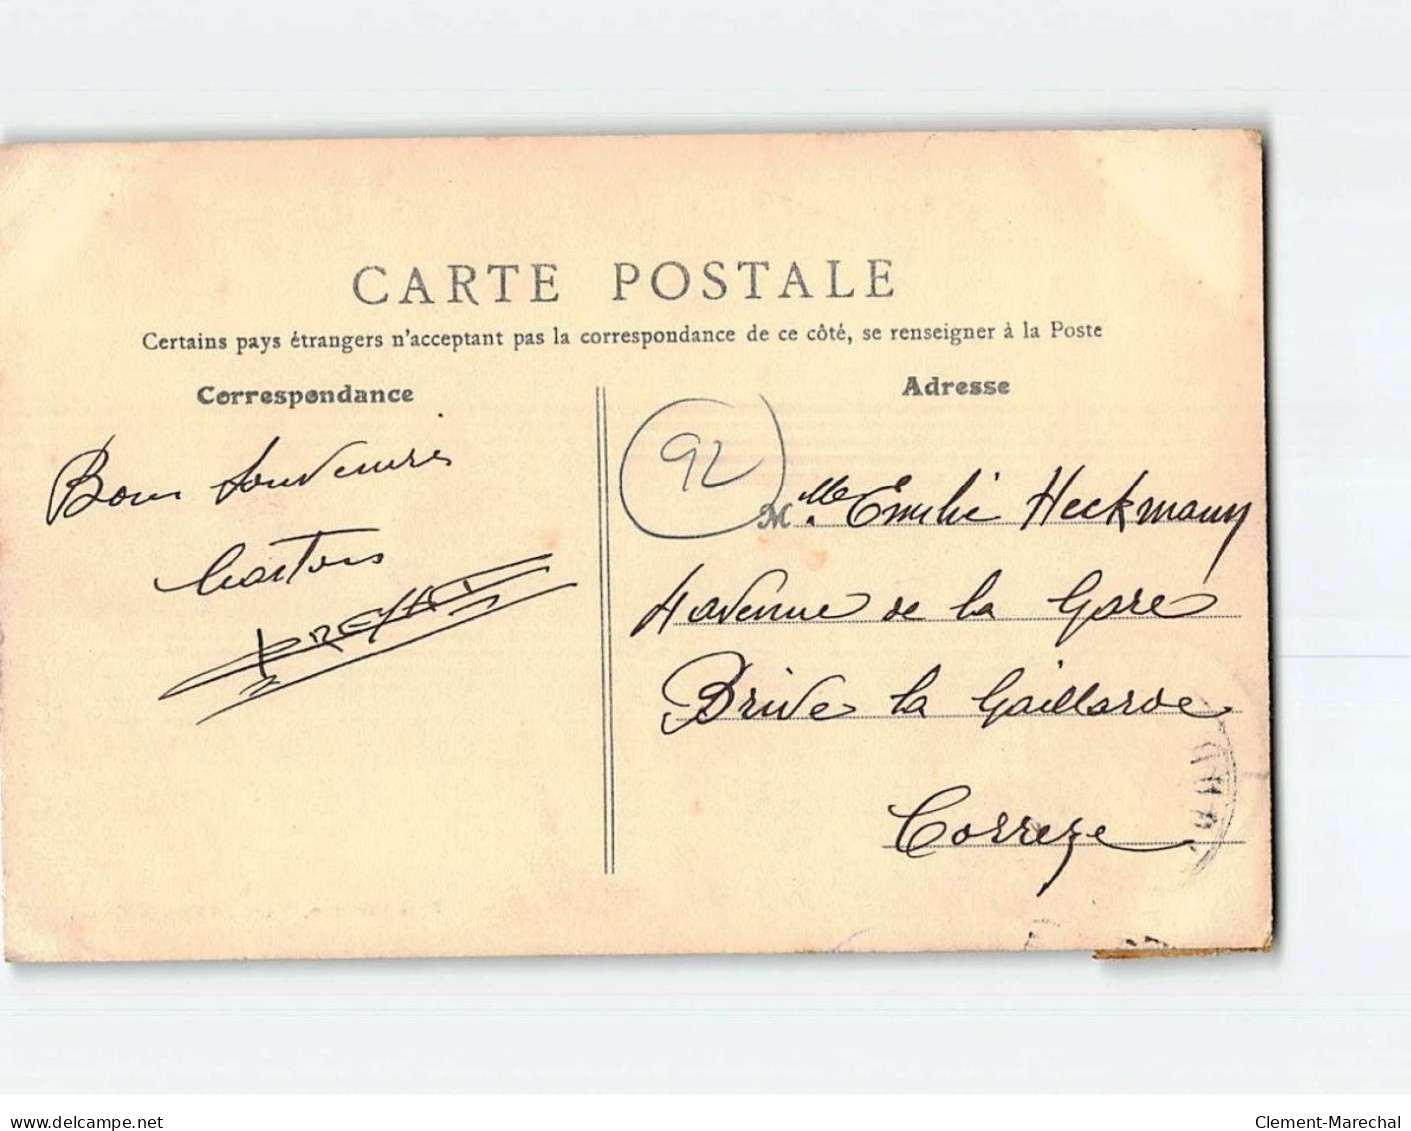 CARTE POSTALE
Certains pays étrangers n'acceptant pas la correspondance de ce côté, se renseigner à la Poste
Correspondance
Bons Souvenirs
Adresse
92
Mlle Emilie Heckmann
4 avenue de la Gare
Brive la Gaillarde
Correze
www.delcampe.net
Clement-Marechal